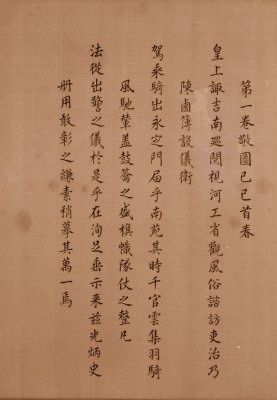 第一卷敬圖己巳首春
皇上諏吉南巡閱視河工省觀風俗諮訪吏治乃
陳鹵簿設儀衛
駕乘騎出永定門屆乎南苑其時千官雲集羽騎
風馳輦蓋鼓簫之盛旗幟隊仗之整凡
法從出警之儀於是乎在洵足垂示來茲光炳史
冊用敢彰之縑素稍摹其萬一焉